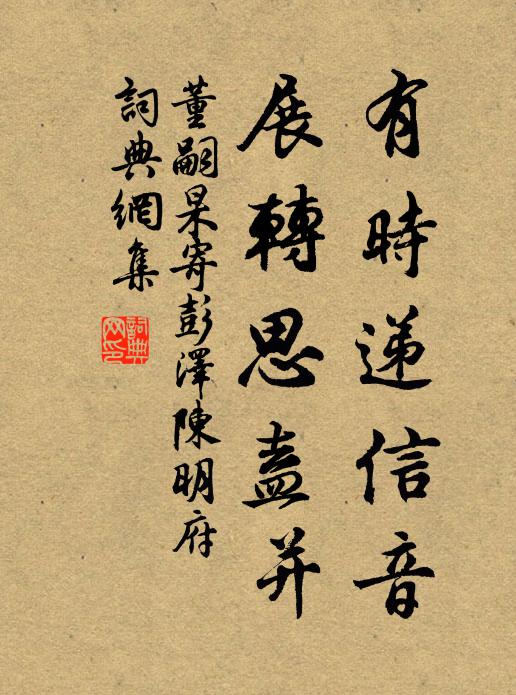 有時递信音
展轉思盍并
董嗣杲寄彭澤陳明府
詞典網集
詞典網印